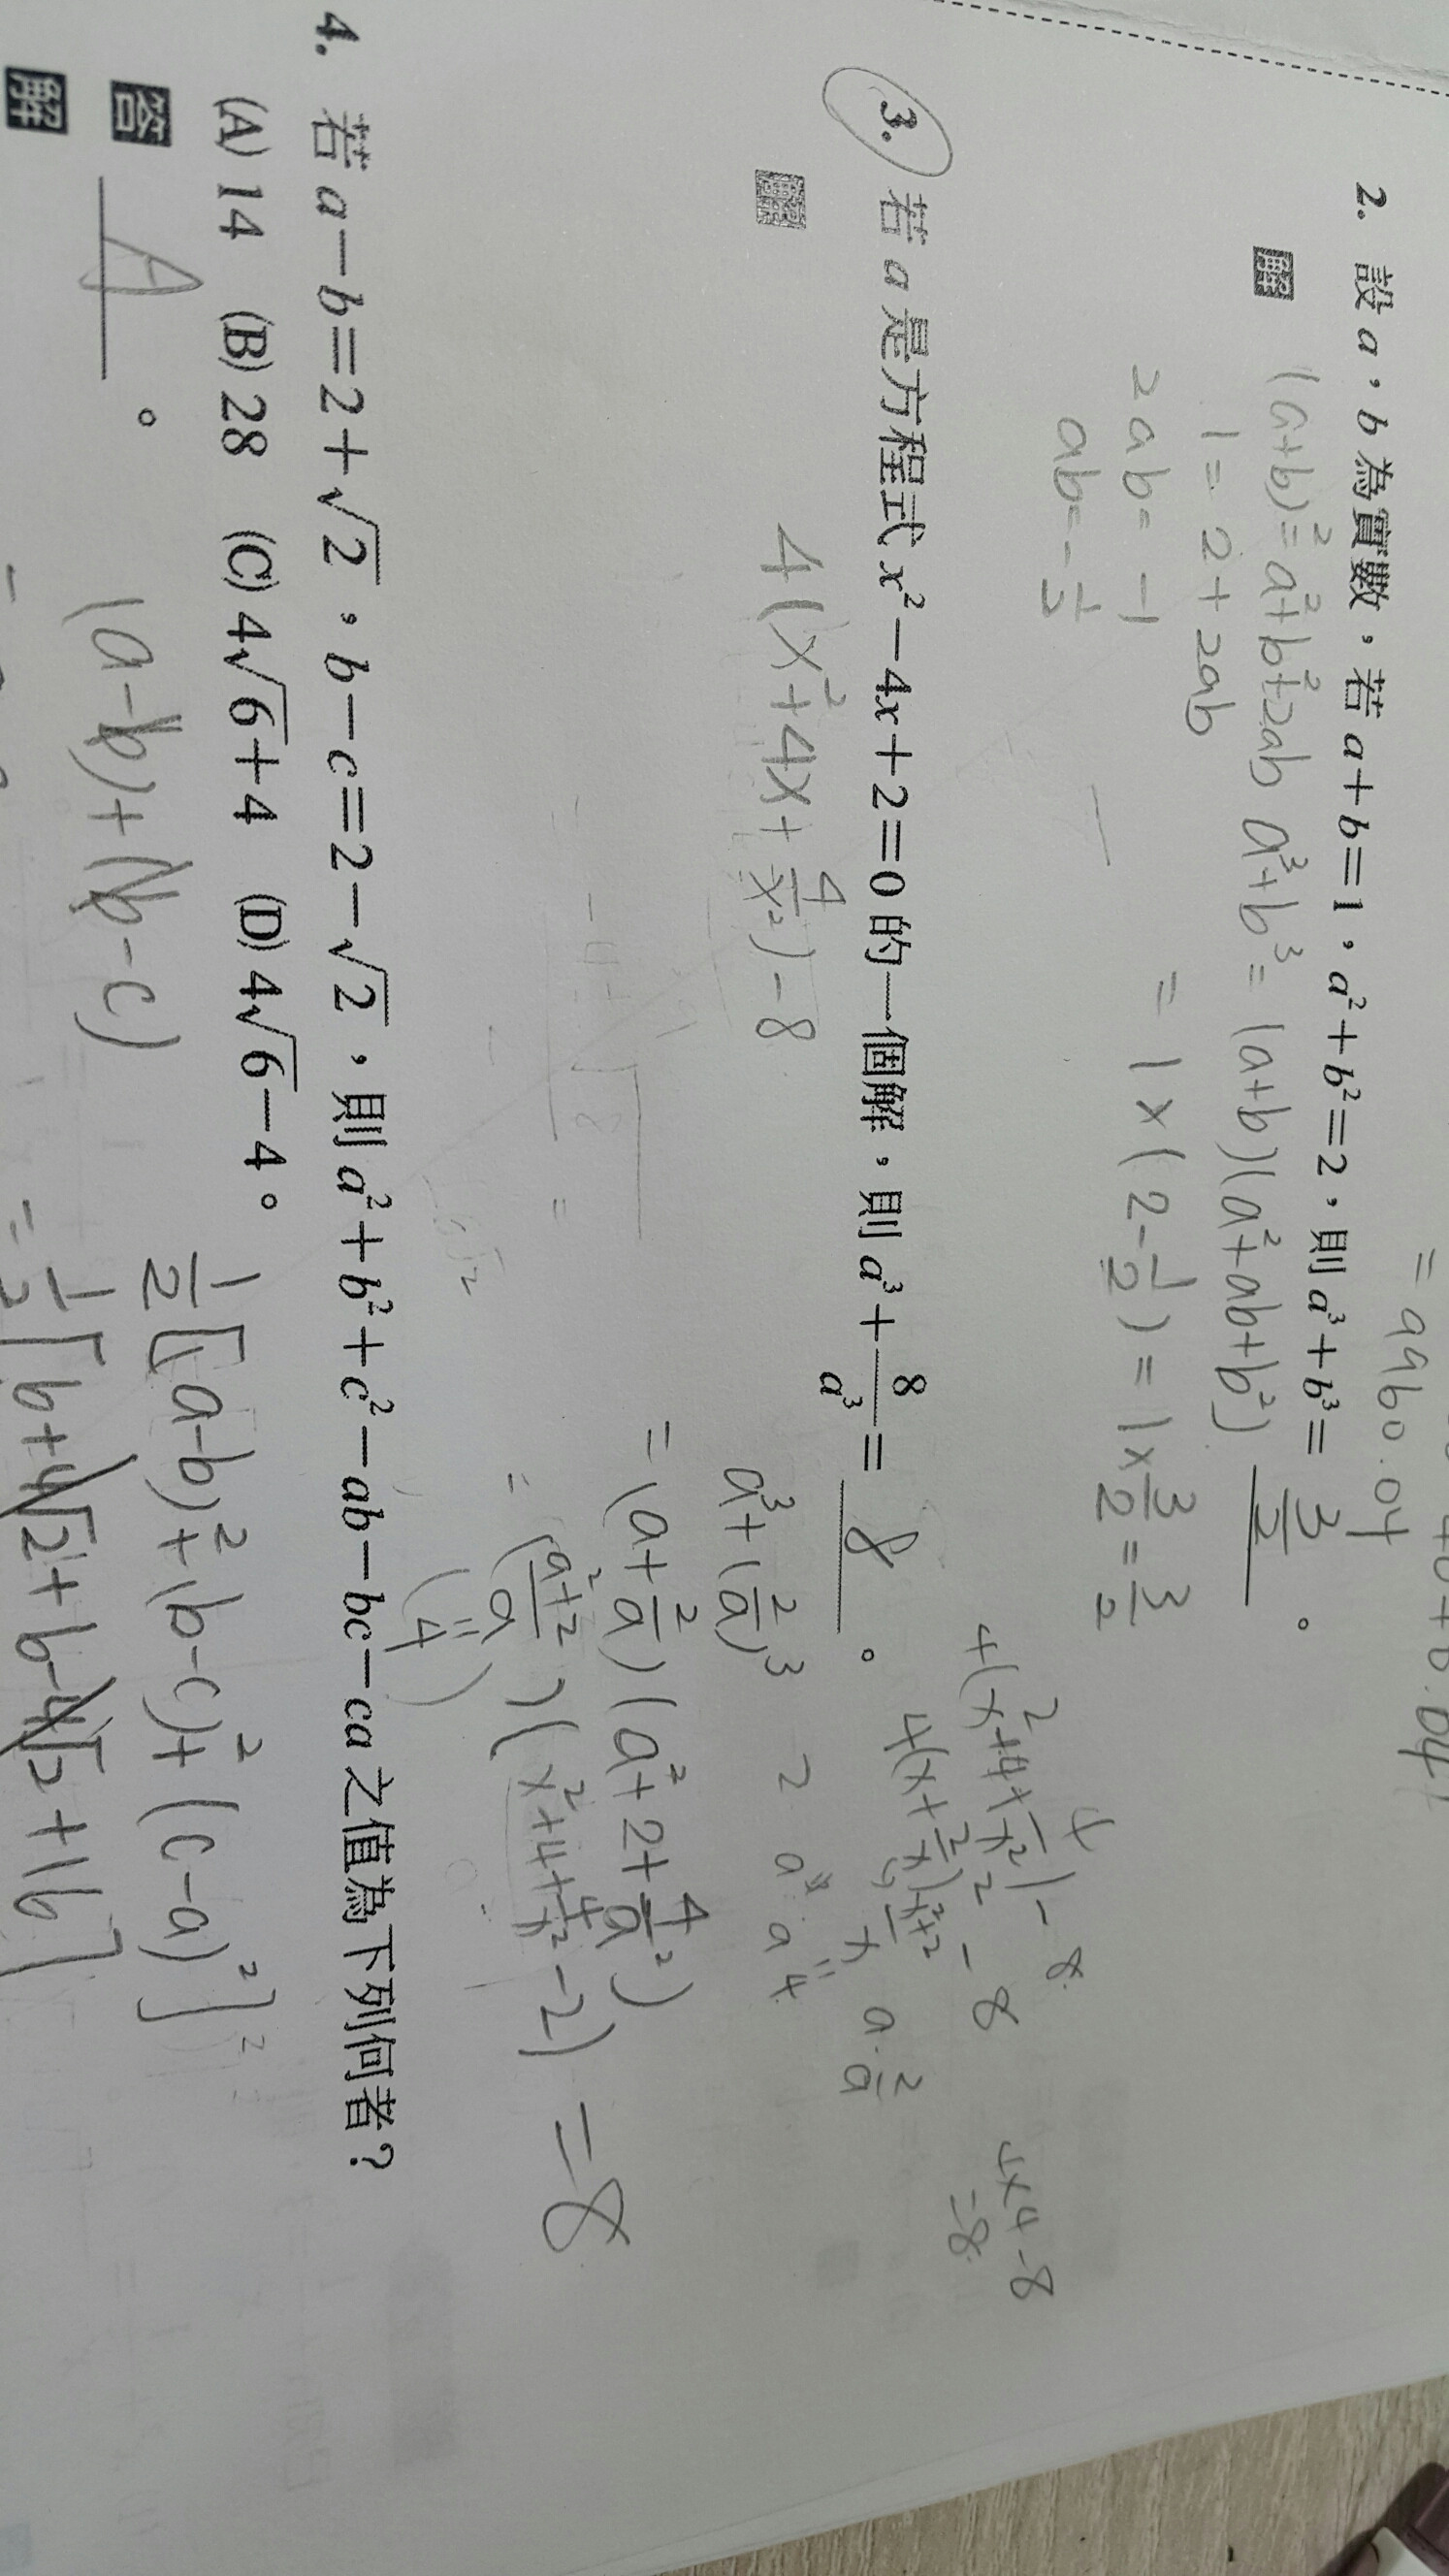 = aab0.04
2. 設 a，b 為實數，若 a＋b＝1，a²＋b²＝2，則 a³＋b³＝ 3/2 。
解
(a+b)² = a²+b²+2ab a³+b³ = (a+b)(a²+ab+b²)
1 = 2 + 2ab
= 1 × (2-1/2) = 1×3/2 = 3/2
2ab = -1
ab = -1/2
3. 若 a 是方程式 x²－4x＋2＝0 的一個解，則 a³＋8/a³＝ 8 。
解
4(x²+4x+4/x²)-8
4(x²+4+4/x²)-8
4×4-8
=8
a³+(2/a)³
= (a+2/a)(a²+2+4/a²)
= (a²+2/a)(x²+4+4/x²-2) = 8
(4)
4. 若 a－b＝2＋√2，b－c＝2－√2，則 a²＋b²＋c²－ab－bc－ca 之值為下列何者？
(A) 14 (B) 28 (C) 4√6＋4 (D) 4√6－4。
答 A 。
解
(a-b)+(b-c)
1/2[(a-b)²+(b-c)²+(c-a)²]
= 1/2[6+4√2+6-4√2+16]